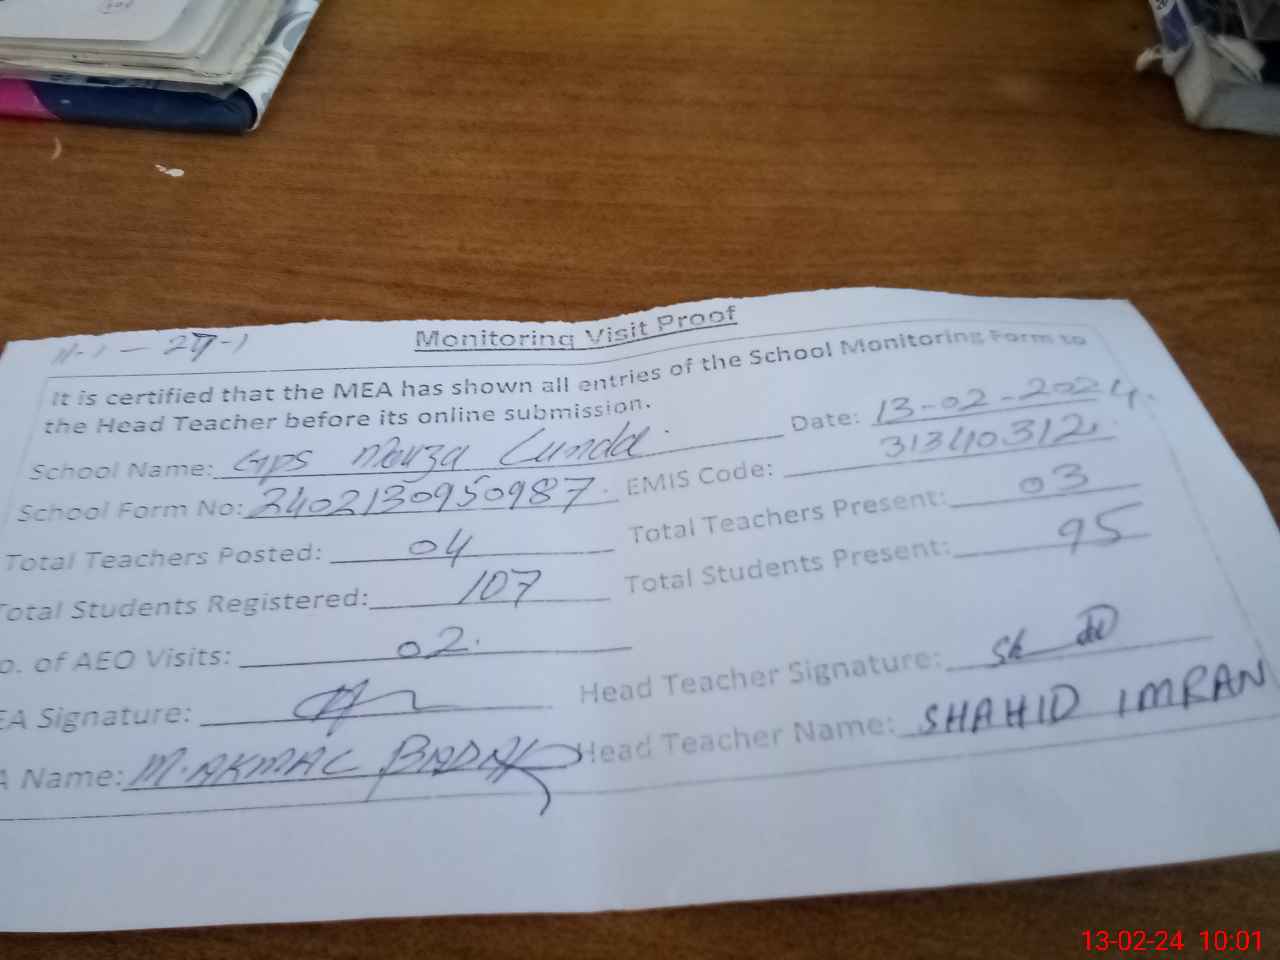 Monitoring Visit Proof
It is certified that the MEA has shown all entries of the School Monitoring Form to
the Head Teacher before its online submission.
School Name: GPS Mouza Lunda Date: 13-02-2024
School Form No: 3402130950987 EMIS Code: 31340312
Total Teachers Posted: 04 Total Teachers Present: 03
Total Students Registered: 107 Total Students Present: 95
o. of AEO Visits: 02
EA Signature: Head Teacher Signature:
A Name: M. AKMAL Head Teacher Name: SHAHID IMRAN
13-02-24 10:01